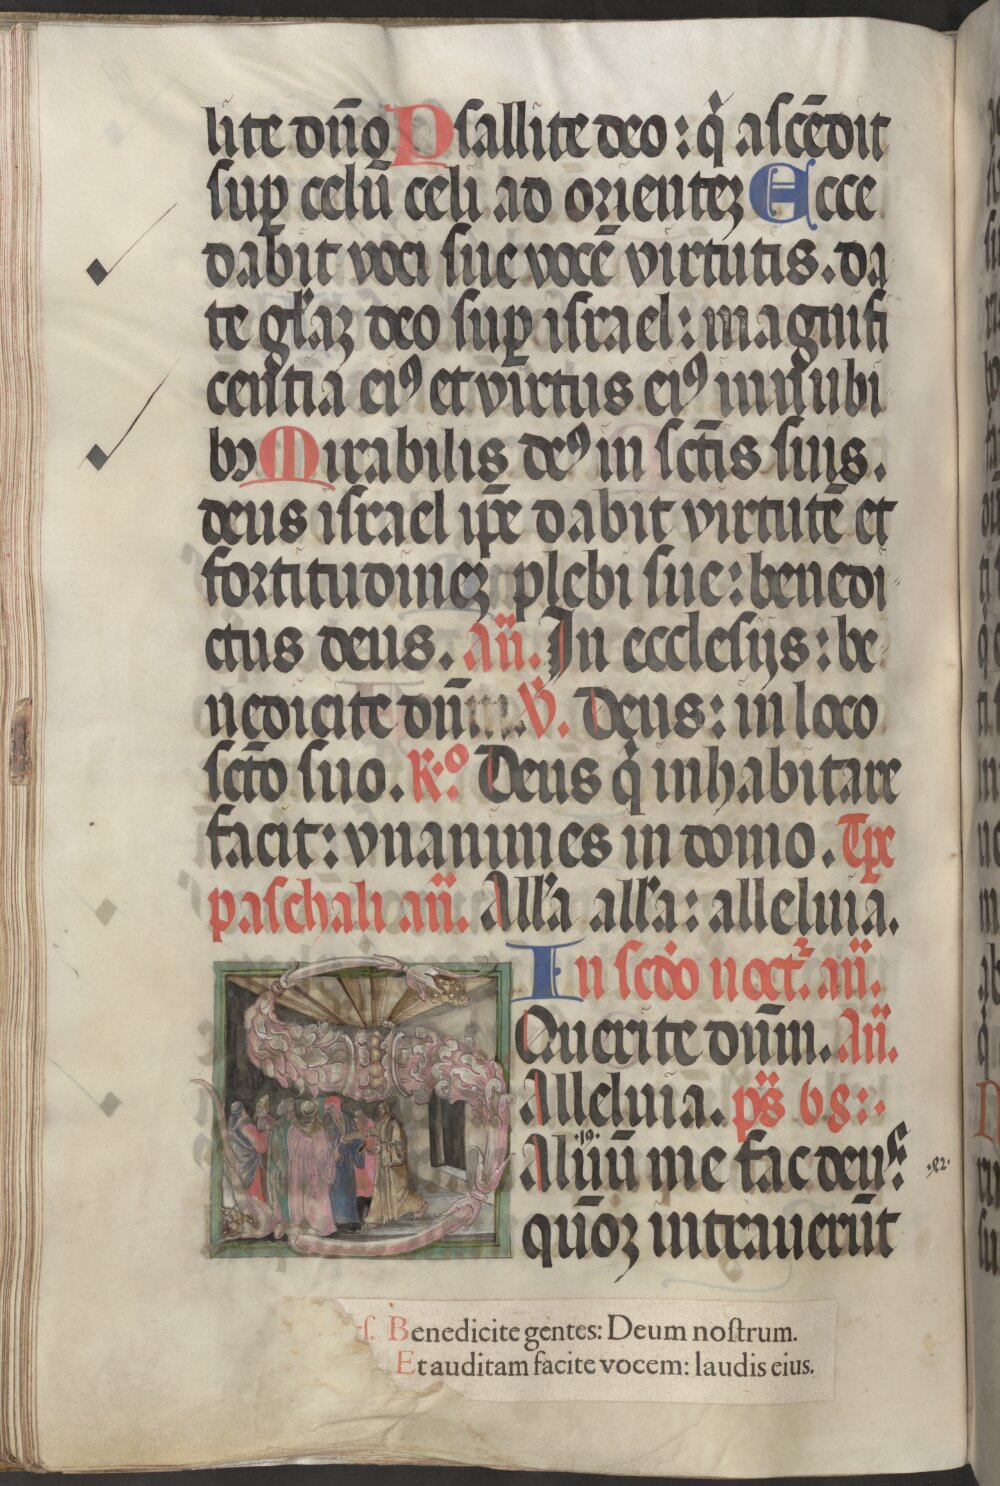 lite dn̄o Psallite deo : qͥ ascēdit
suꝑ celū celi ad orienteꝫ Ecce
dabit voci sue vocē virtutis . da
te gl̄'aꝫ deo suꝑ israel : magnifi
centia eiꝰ et virtus eiꝰ in nubi
bꝫ Mirabilis deꝰ in sctīs suis .
deus israel ip̄e dabit virtutē et
fortitudineꝫ plebi sue : benedi
ctus deus . an̄ . In ecclesijs : be
nedicite dn̄m . V̄ . Deus : in loco
sctō suo . R̄:º Deus qͥ inhabitare
facit : vnanimes in domo . Tp̄e
paschali an̄ . All'a all'a : alleluia .
In scd̄o noct̄. an̄ .
Querite dn̄m . An̄ .
Alleluia . ps̄ 68 : ·
Aluū me fac deus
quō̄ꝫ intrauerūt
.s. Benedicite gentes: Deum noſtrum.
Et auditam facite vocem: laudis eius.